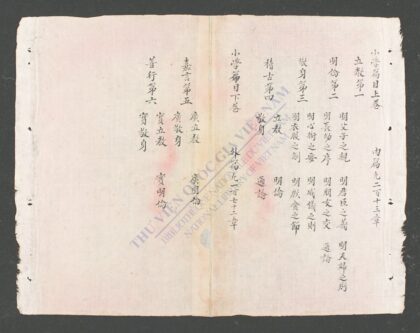 小学篇目上卷 內篇凡二百十三章
立教第一
明倫第二 明父子之親 明君臣之義 明夫婦之別
明長幼之序 明朋友之交 通論
敬身第三 明心術之要 明威儀之則
明衣服之制 明飲食之節
稽古第四 立教 明倫
敬身 通論
小学篇目下卷 外篇凡一百七十三章
嘉言第五 廣立教 廣明倫
廣敬身
善行第六 實立教 實明倫
實敬身
THƯ VIỆN QUỐC GIA VIỆT NAM
BIBLIOTHÈQUE NATIONALE DU VIETNAM
NATIONAL LIBRARY OF VIETNAM